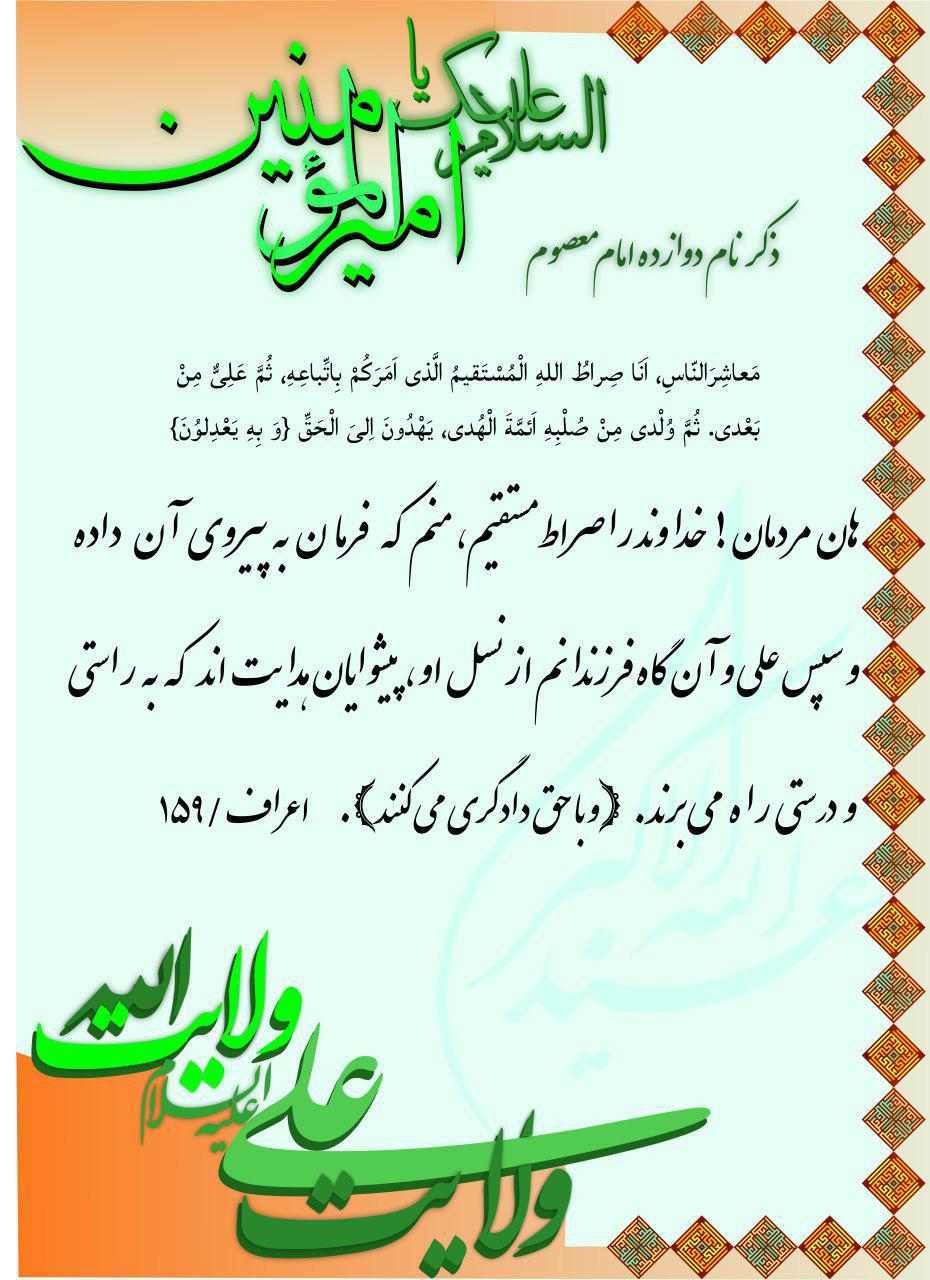 السلام علیک یا
امیرالمؤمنین
ذکر نام دوازده امام معصوم
مَعاشِرَالنّاسِ، اَنَا صِراطُ اللهِ الْمُسْتَقیمُ الَّذی اَمَرَکُمْ بِاتِّباعِهِ، ثُمَّ عَلِیٌّ مِنْ
بَعْدی. ثُمَّ وُلْدی مِنْ صُلْبِهِ اَئمَّةَ الْهُدی، یَهْدُونَ اِلیَ الْحَقِّ {وَ بِهِ یَعْدِلوُنَ}
هان مردمان! خداوند را صراط مستقیم، منم که فرمان به پیروی آن داده
و سپس علی و آن گاه فرزندانم از نسل او، پیشوایان هدایت اند که به راستی
و درستی راه می برند. ﴿و با حق دادگری می کنند﴾. اعراف / ۱۵۹
عید الله الاکبر
ولایت الله
ولایت علی
علیه السلام